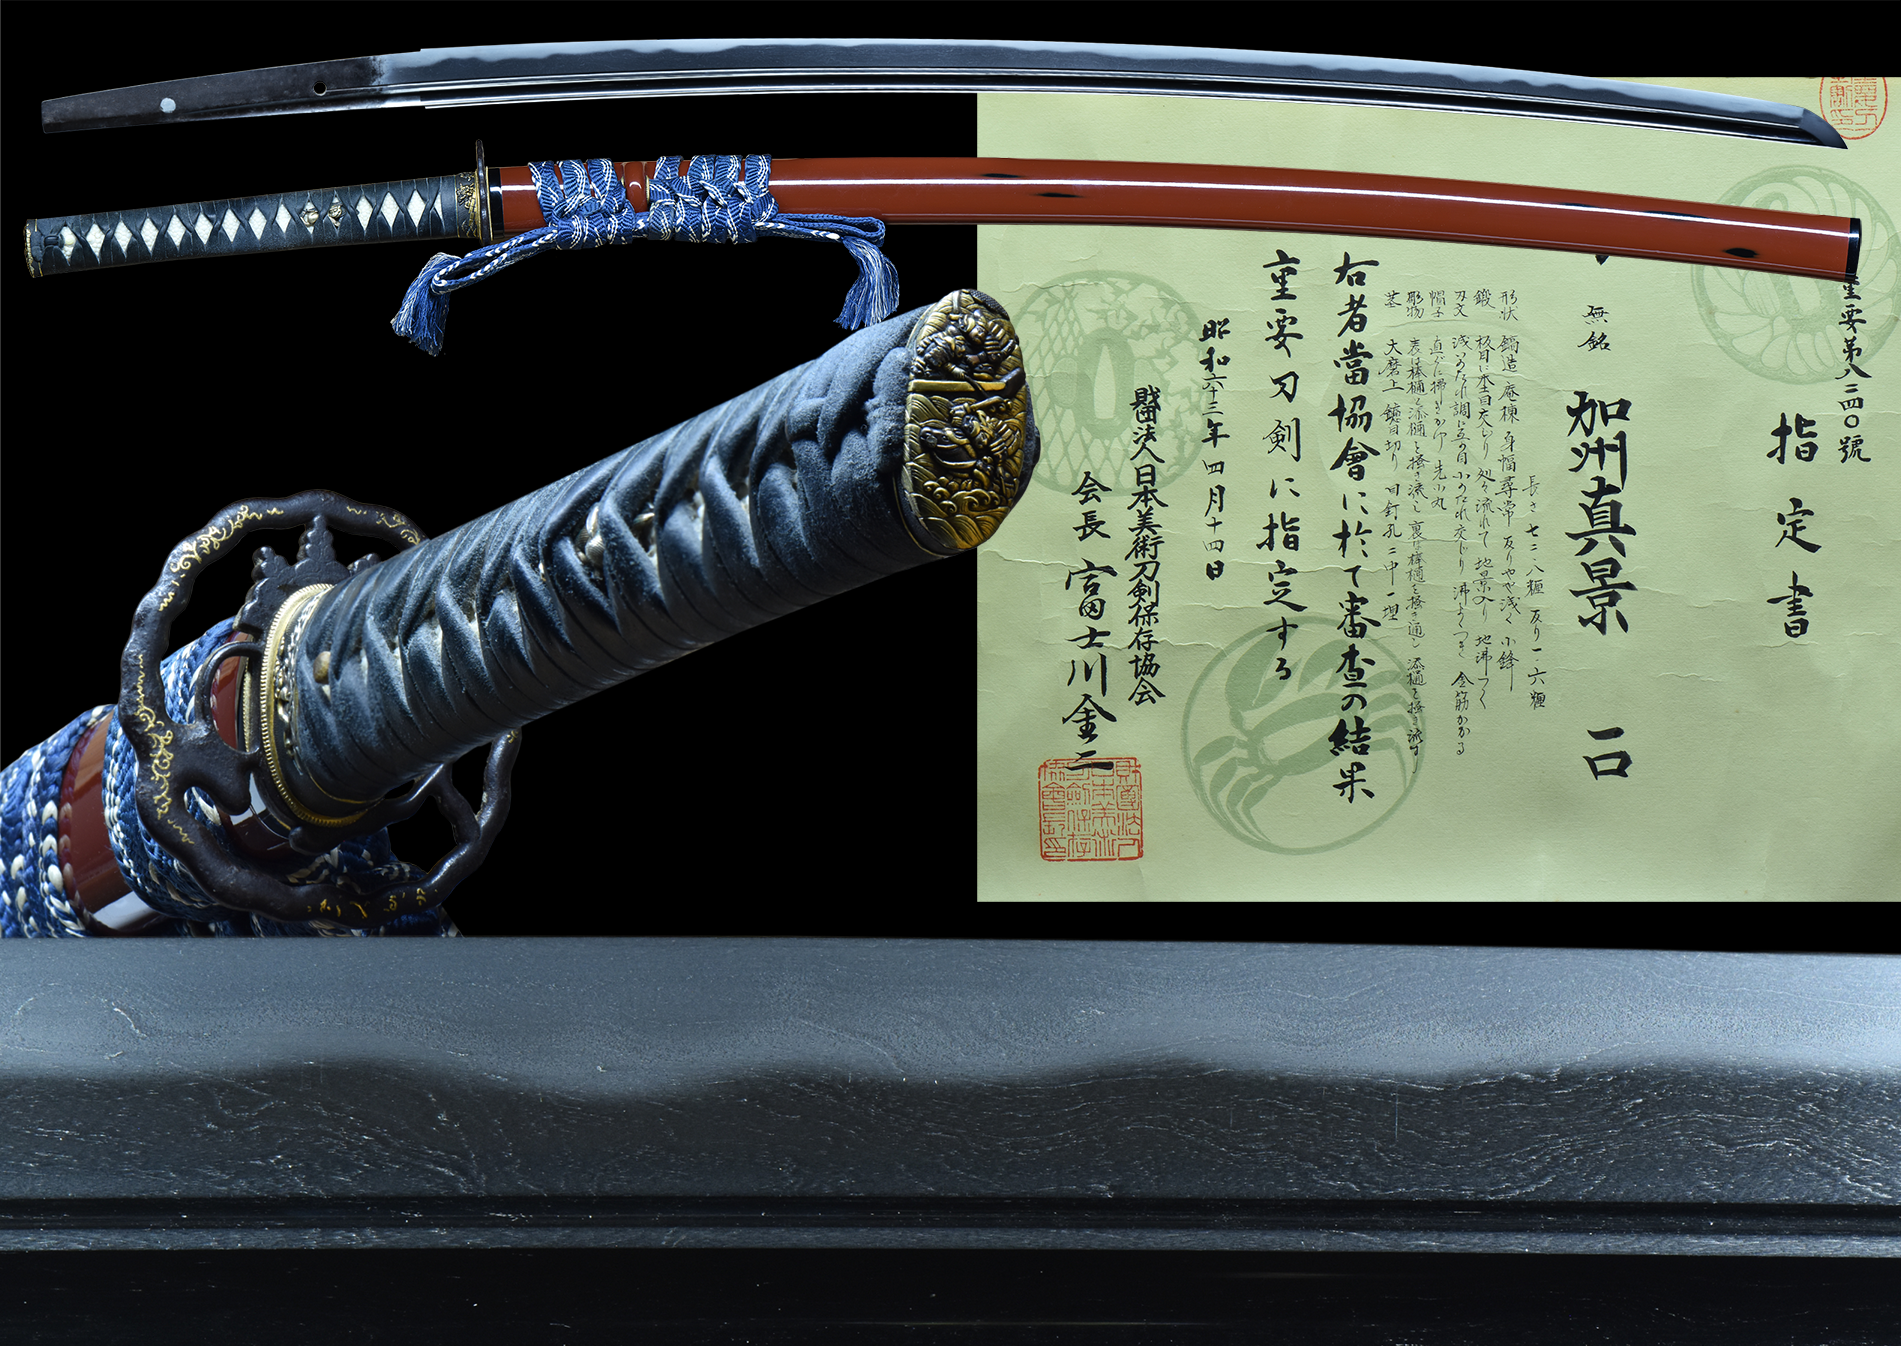 重要第八二四〇號
指定書
無銘 加州真景 一口
長さ 七二・八糎 反り 一・六糎
形状 鎬造 庵棟 身幅尋常 反りやや浅く 小鋒
鍛 板目に杢目交じり 処々流れて 地景入り 地沸つく
刃文 浅いのたれ調に互の目 小のたれ交じり 沸よくつき 金筋かかる
帽子 直ぐに掃きかけ 先小丸
彫物 表は棒樋に添樋を掻き流し 裏は棒樋を掻き通し 添樋を掻き流す
茎 大磨上 鑢目切り 目釘孔二中一埋
右者當協會に於て審査の結果
重要刀剣に指定する
昭和六十三年四月十四日
財団法人日本美術刀剣保存協会
会長 富士川金二